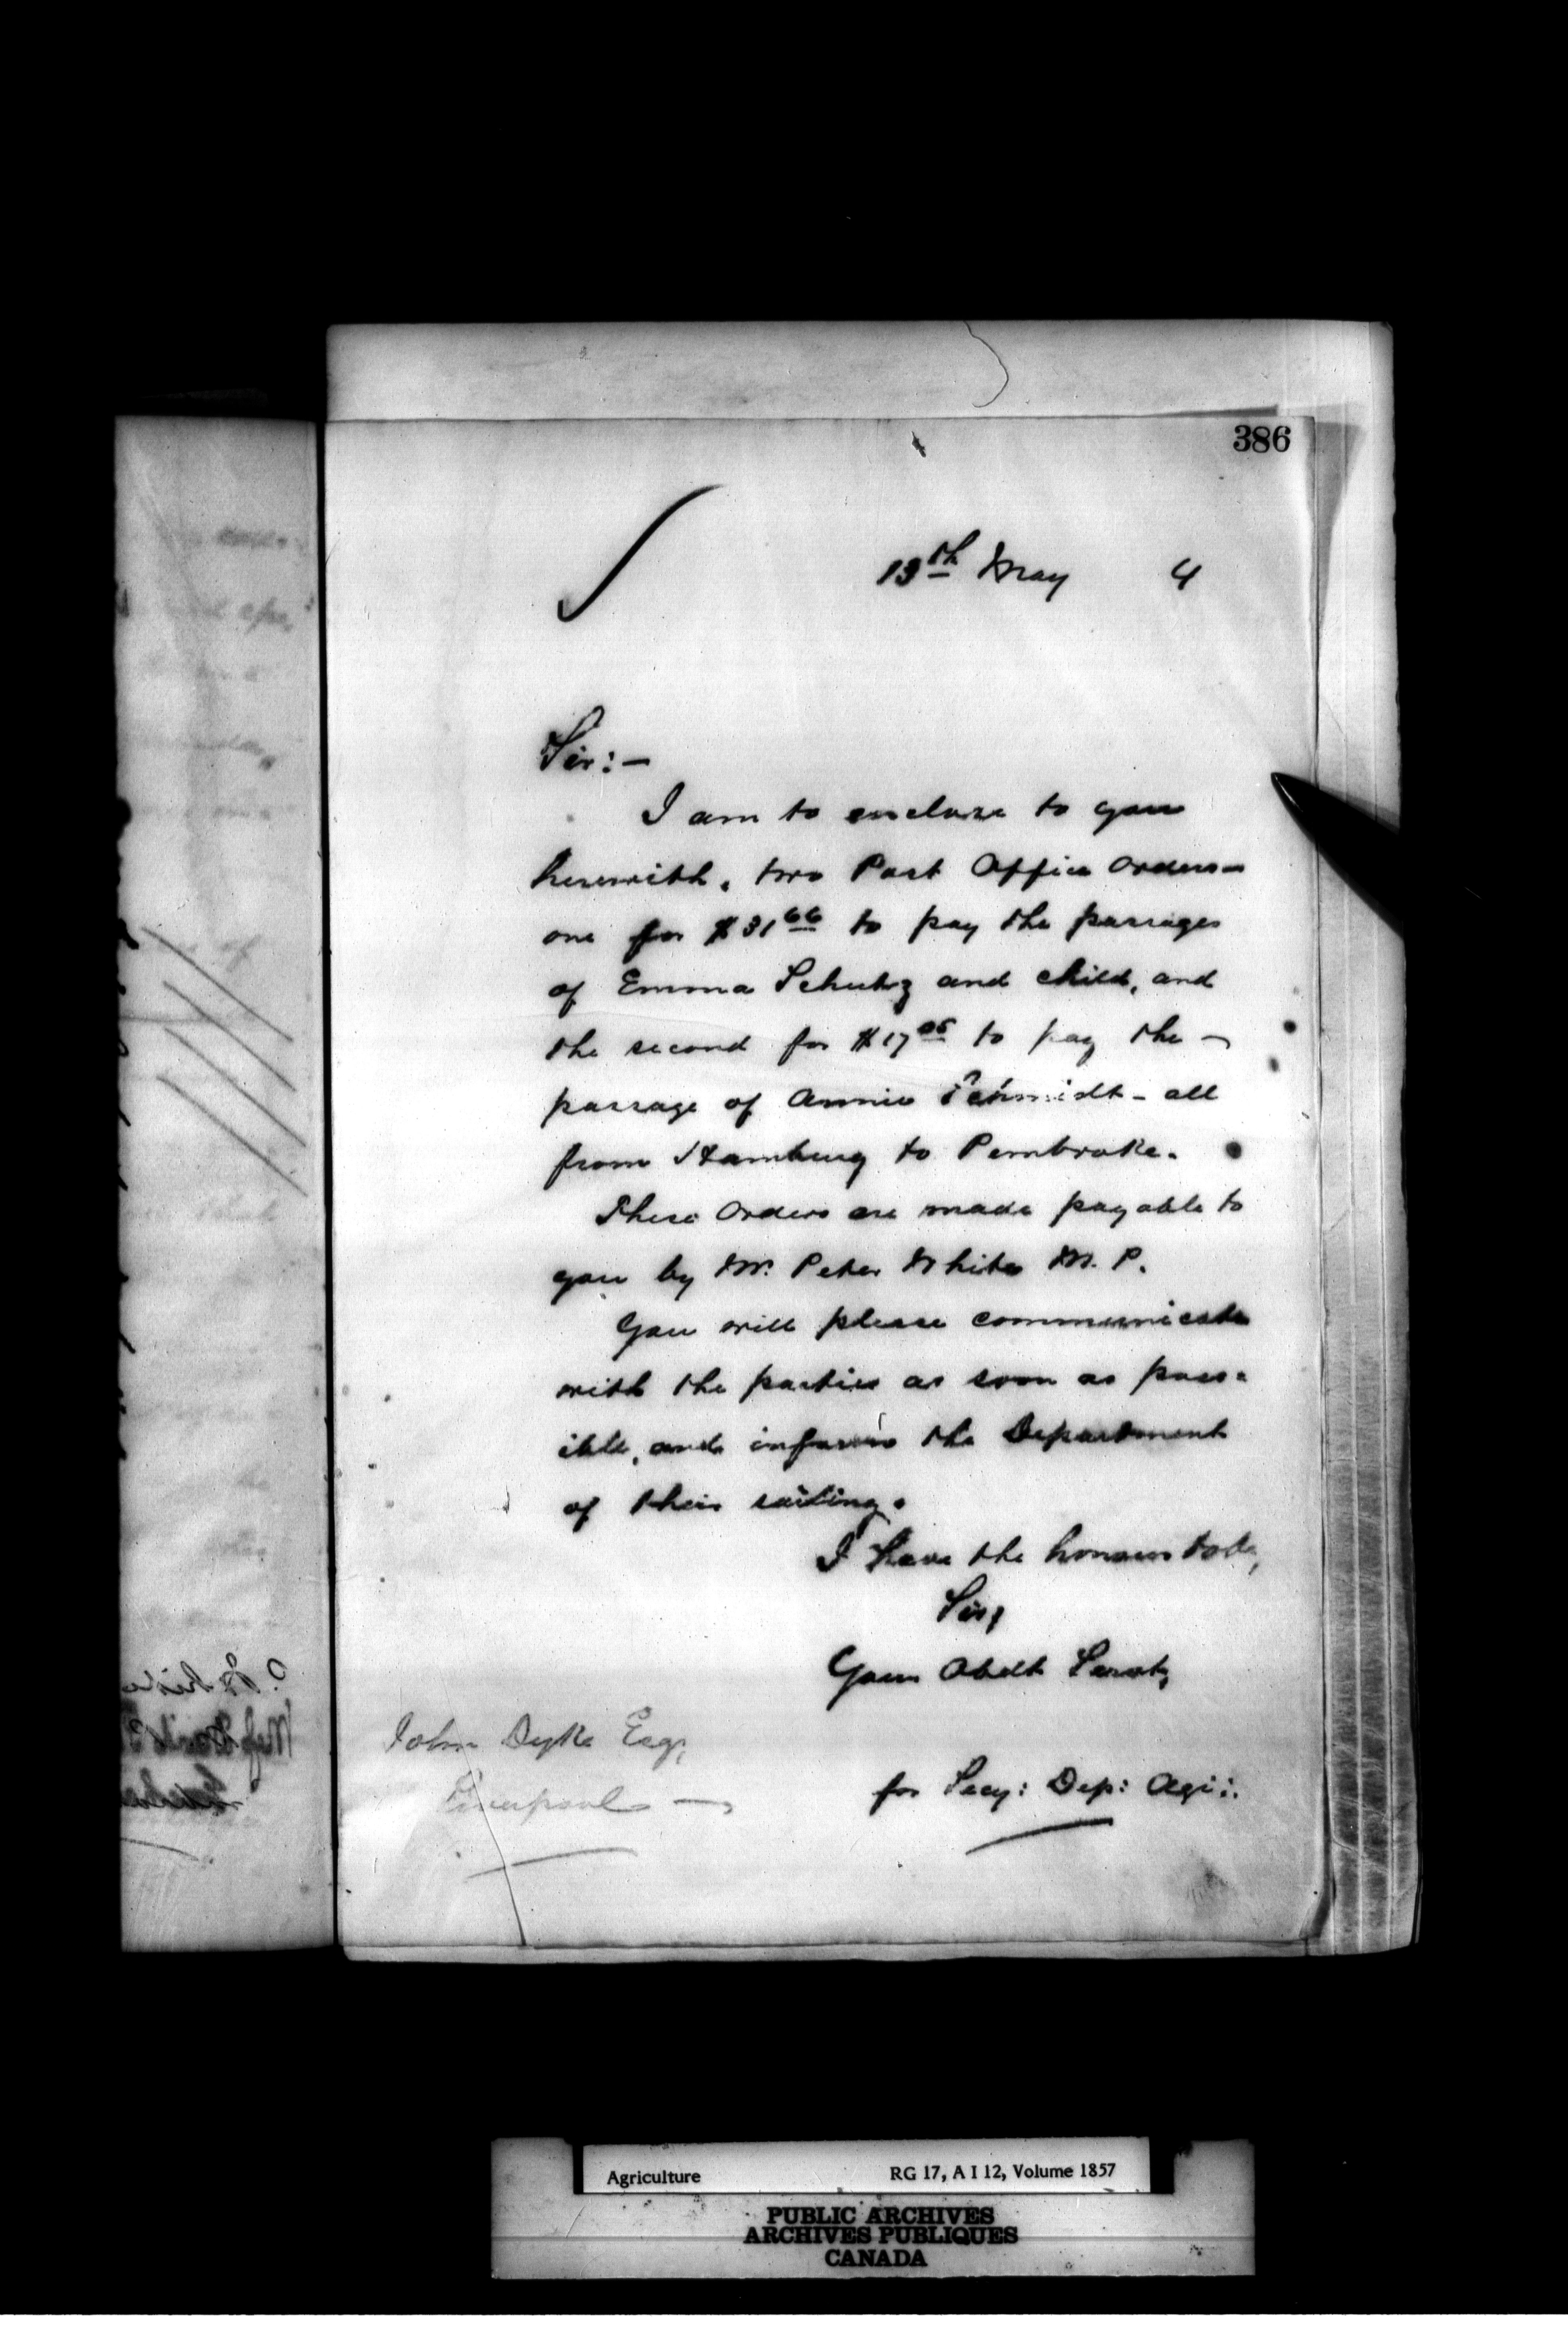 386
13th May 4
Sir:—
I am to enclose to you
herewith, two Post Office orders—
one for $31 66 to pay the passages
of Emma Schultz and child, and
the second for $17 05 to pay the
passage of Annie Schmidt — all
from Hamburg to Pembroke.
These Orders are made payable to
you by Mr. Peter White M. P.
You will please communicate
with the parties as soon as poss=
ible, and inform the Department
of their sailing.
I have the honour to be,
Sir,
Your Obedt Servt,
John Dyke Esq,
Liverpool —
for Secy: Dep: Agri:.
Agriculture RG 17, A I 12, Volume 1857
PUBLIC ARCHIVES
ARCHIVES PUBLIQUES
CANADA